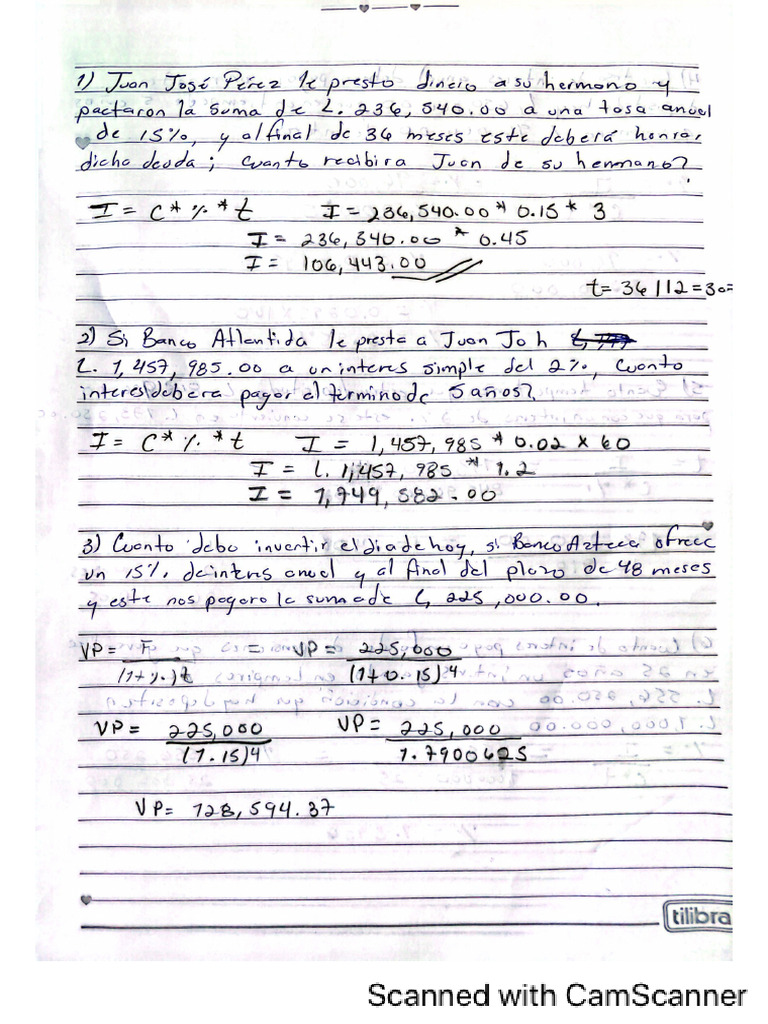 1) Juan José Pérez le presto dinero a su hermano y
pactaron la suma de L. 236,540.00 a una tasa anual
de 15%, y al final de 36 meses este deberá honrar
dicha deuda; cuanto recibira Juan de su hermano?
I = C * % * t I = 236,540.00 * 0.15 * 3
I = 236,540.00 * 0.45
I = 106,443.00
t = 36/12 = 30=
2) Si Banco Atlantida le presta a Juan Jo h
L. 1,457,985.00 a un interes simple del 2%, Cuanto
interes debera pagar al termino de 5 años?
I = C * % * t I = 1,457,985 * 0.02 x 60
I = L. 1,457,985 * 1.2
I = 1,749,582.00
3) Cuanto debo invertir el dia de hoy, si Banco Azteca ofrece
un 15% de interes anual y al final del plazo de 48 meses
y este nos pagara la suma de L, 225,000.00.
VP = F / (1+%)t = VP = 225,000 / (1+0.15)4
VP = 225,000 / (1.15)4 VP = 225,000 / 1.7900625
VP = 128,594.37
tilibra
Scanned with CamScanner